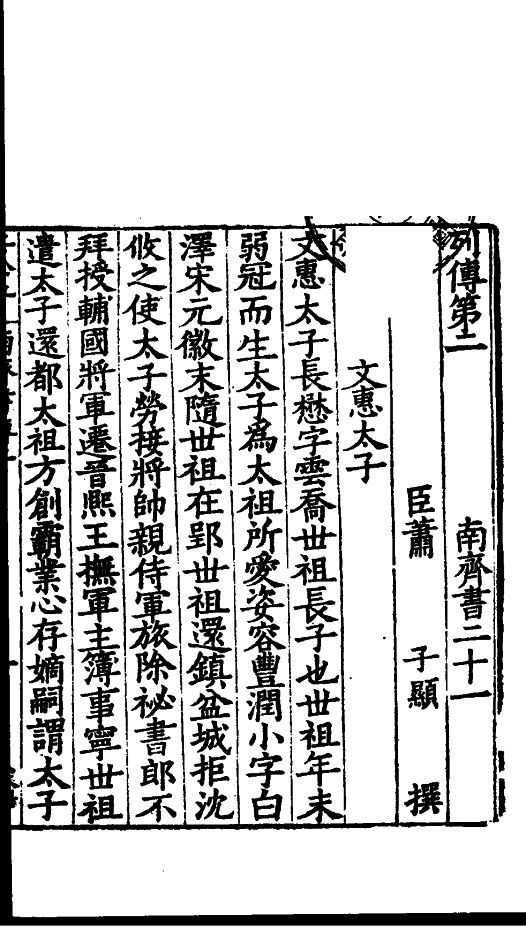 列傳第二　南齊書二十一
臣蕭　子顯　撰
文惠太子
文惠太子長懋字雲喬世祖長子也世祖年未
弱冠而生太子爲太祖所愛姿容豐潤小字白
澤宋元徽末隨世祖在郢世祖還鎮盆城拒沈
攸之使太子勞接將帥親侍軍旅除祕書郎不
拜授輔國將軍遷晉熈王撫軍主簿事寧世祖
遣太子還都太祖方創霸業心存嫡嗣謂太子